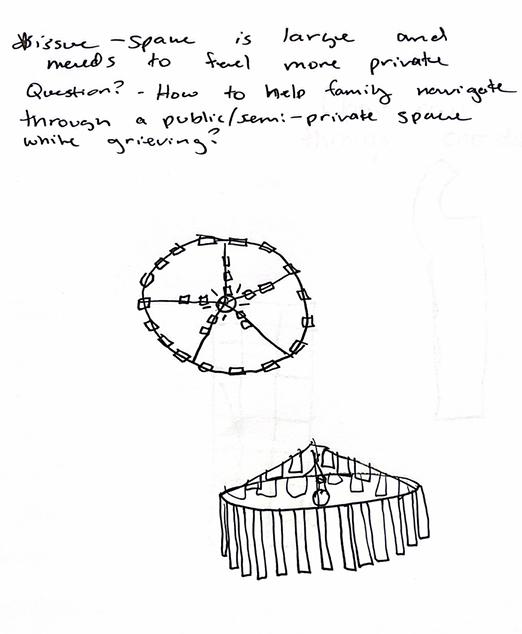 issue - space is large and
needs to feel more private
Question? - How to help family navigate
through a public/semi-private space
while grieving?